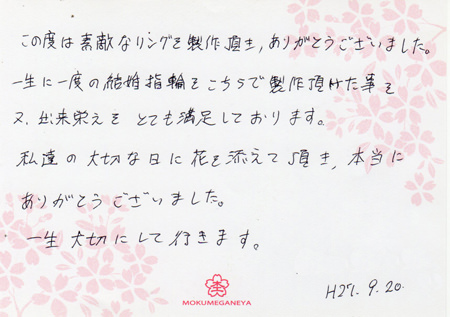 この度は素敵なリングを製作頂き,ありがとうございました。
一生に一度の結婚指輪をこちらで製作頂けた事を
又、出来栄えを とても満足しております。
私達の大切な日に花を添えて頂き,本当に
ありがとうございました。
一生大切にして行きます。
MOKUMEGANEYA
H27. 9. 20.